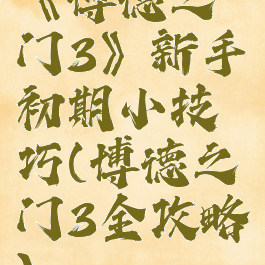 《博德之
门3》新手
初期小技
巧(博德之
门3全攻略
)